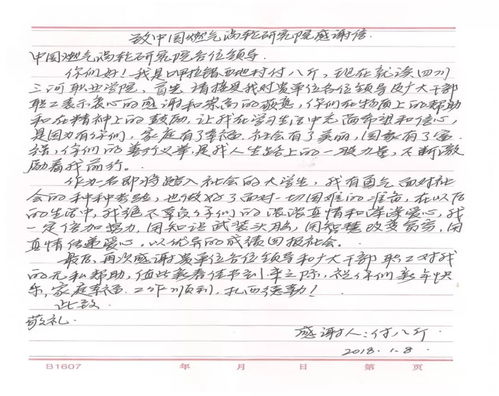 致中国燃气涡轮研究院感谢信
中国燃气涡轮研究院各位领导:
你们好!我是甲拉错西地村付八斤,现在就读四川
三河职业学院,首先请接受我对贵单位各位领导及广大干部
职工表示衷心的感谢和崇高的敬意,你们在物质上的帮助
和在精神上的鼓励,让我在学习生活中充满希望和信心,
是因为有你们,家庭有了幸福,社会有了美丽,国家有了富
强,你们的善行义举,是我人生路上的一股力量,不断激
励着我前行。
作为名即将踏入社会的大学生,我有勇气面对社
会的种种考验,也做好了面对一切困难的准备,在以后
的生活中,我绝不辜负你们的浓浓真情和深深爱心,我
一定倍加努力,用知识武装头脑,用智慧改变命运,用
真情传递爱心,以优异的成绩回报社会。
最后,再次感谢贵单位各位领导和广大干部职工对我
的无私帮助,值此新春佳节到来之际,祝你们新年快
乐,家庭幸福,工作顺利,扎西德勒!
此致
敬礼。
感谢人:付八斤
2018.1.8
B1607 年 月 日 第 页